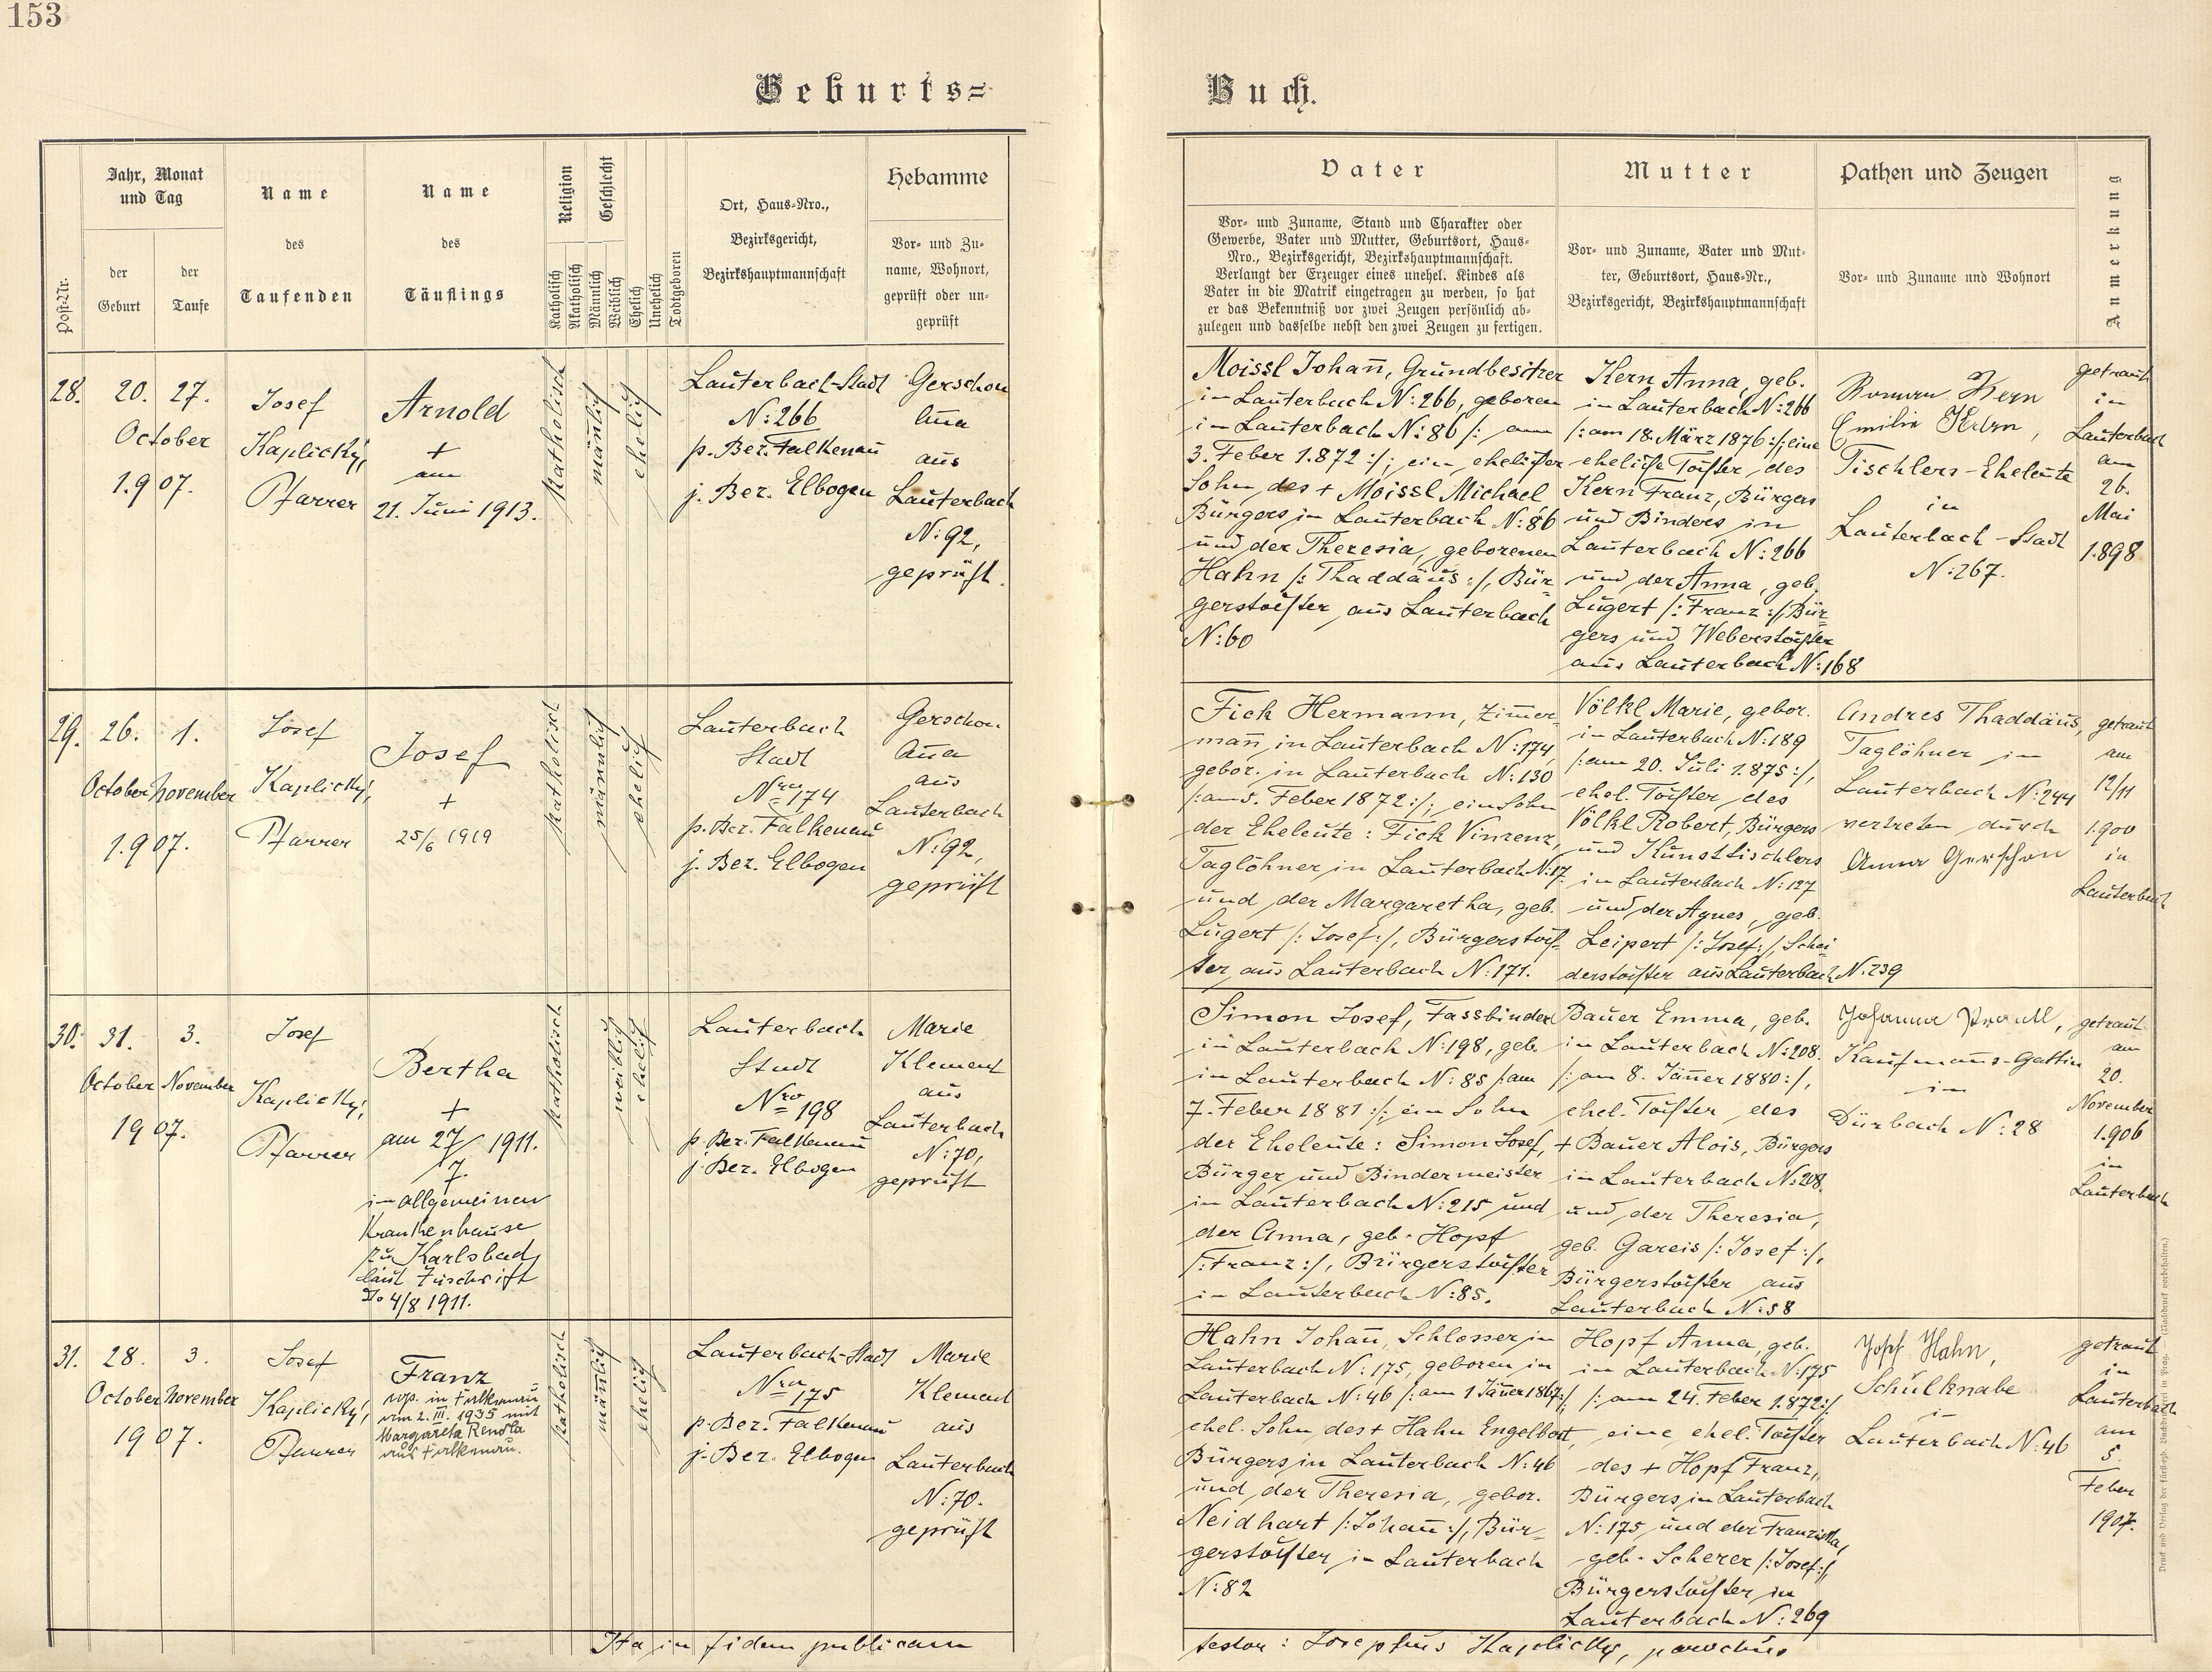 153
Geburts=
Buch.
Post-Nr.
Jahr, Monat
und Tag
der
Geburt
der
Taufe
Name
des
Taufenden
Name
des
Täuflings
Religion
Katholisch
Akatholisch
Geschlecht
Männlich
Weiblich
Ehelich
Unehelich
Todtgeboren
Ort, Haus=Nro.,
Bezirksgericht,
Bezirkshauptmannschaft
Hebamme
Vor= und Zu=
name, Wohnort,
geprüft oder un=
geprüft
Vater
Vor= und Zuname, Stand und Charakter oder
Gewerbe, Vater und Mutter, Geburtsort, Haus=
Nro., Bezirksgericht, Bezirkshauptmannschaft.
Verlangt der Erzeuger eines unehel. Kindes als
Vater in die Matrik eingetragen zu werden, so hat
er das Bekenntniß vor zwei Zeugen persönlich ab=
zulegen und dasselbe nebst den zwei Zeugen zu fertigen.
Mutter
Vor= und Zuname, Vater und Mut=
ter, Geburtsort, Haus=Nr.,
Bezirksgericht, Bezirkshauptmannschaft
Pathen und Zeugen
Vor= und Zuname und Wohnort
Anmerkung
28.
20. 27.
October
1.907.
Josef
Kaplický,
Pfarrer
Arnold
+
am
21. Juni 1913.
katholisch
männlich
ehelich
Lauterbach-Stadt
N: 266
p. Bez. Falkenau
j. Bez. Elbogen
Gerschon
Aña
aus
Lauterbach
N: 92,
geprüft.
Moissl Johañ, Grundbesitzer
in Lauterbach N: 266, geboren
in Lauterbach N: 86 /: am
3. Feber 1.872 :/; ein ehelicher
Sohn des + Moissl Michael
Bürgers in Lauterbach N: 86
und der Theresia, geborenen
Hahn /: Thaddäus :/, Bür-
gerstochter aus Lauterbach
N: 60
Kern Anna, geb.
in Lauterbach N: 266
/: am 18. März 1876 :/; eine
eheliche Tochter des
Kern Franz, Bürgers
und Binders in
Lauterbach N: 266
und der Anna, geb.
Lugert /: Franz :/, Bür-
gers und Weberstochter
aus Lauterbach N: 168
Roman Kern
Emilie Kern,
Tischlers-Eheleute
in
Lauterbach-Stadt
N: 267.
getraut
in
Lauterbach
am
26.
Mai
1.898
29.
26. 1.
October November
1.907.
Josef
Kaplický,
Pfarrer
Josef
+
25/6 1919
katholisch
männlich
ehelich
Lauterbach
Stadt
Nro 174
p. Bez. Falkenau
j. Bez. Elbogen
Gerschon
Aña
aus
Lauterbach
N: 92,
geprüft
Fick Hermann, Zim̃er-
mañ in Lauterbach N: 174,
gebor. in Lauterbach N: 130
/: am 5. Feber 1872 :/; ein Sohn
der Eheleute: Fick Vinzenz,
Taglöhner in Lauterbach N: 17
und der Margaretha, geb.
Lugert /: Josef :/, Bürgerstoch-
ter aus Lauterbach N: 171.
Völkl Marie, gebor.
in Lauterbach N: 189
/: am 20. Juli 1.875 :/,
ehel. Tochter des
Völkl Robert, Bürgers
und Kunsttischlers
in Lauterbach N: 127
und der Agnes, geb.
Leipert /: Josef :/, Schnei
derstochter aus Lauterbach N: 239
Andres Thaddäus,
Taglöhner in
Lauterbach N: 244
vertreten durch
Anna Gerschon
getraut
am
12/11
1.900
in
Lauterbach
30.
31. 3.
October November
1907.
Josef
Kaplický,
Pfarrer
Bertha
+
am 27/7 1911.
im allgemeinen
Krankenhause
zu Karlsbad
laut Zuschrift
do 4/8 1911.
katholisch
weiblich
ehelich
Lauterbach
Stadt
Nro 198
p. Bez. Falkenau
j. Bez. Elbogen
Marie
Klement
aus
Lauterbach
N: 70,
geprüft
Simon Josef, Fassbinder
in Lauterbach N: 198, geb.
in Lauterbach N: 85 /: am
7. Feber 1881 :/; ein Sohn
der Eheleute: Simon Josef,
Bürger und Bindermeister
in Lauterbach N: 215 und
der Anna, geb. Hopf
/: Franz :/, Bürgerstochter
in Lauterbach N: 85.
Bauer Emma, geb.
in Lauterbach N: 208.
/: am 8. Jäñer 1880 :/,
ehel. Tochter des
+ Bauer Alois, Bürgers
in Lauterbach N: 208.
und der Theresia,
geb. Gareis /: Josef :/,
Bürgerstochter aus
Lauterbach N: 58
Johanna
Kaufmañs-Gattin
in
Dürbach N: 28
getraut
am
20.
November
1.906
in
Lauterbach
31.
28. 3.
October November
1907.
Josef
Kaplický,
Pfarrer
Franz
in Falkenau
am 2. III. 1935 mit
Margareta
aus Falkenau.
katholisch
männlich
ehelich
Lauterbach-Stadt
Nro 175
p. Bez. Falkenau
j. Bez. Elbogen
Marie
Klement
aus
Lauterbach
N: 70.
geprüft
Hahn Johañ, Schlosser in
Lauterbach N: 175, geboren in
Lauterbach N: 46 /: am 1 Jäñer 1867 :/;
ehel. Sohn des + Hahn Engelbert,
Bürgers in Lauterbach N: 46
und der Theresia, gebor.
Neidhart /: Johañ :/, Bür-
gerstochter in Lauterbach
N: 82
Hopf Anna, geb.
in Lauterbach N: 175
/: am 24. Feber 1.872 :/
eine ehel. Tochter
des + Hopf Franz,
Bürgers in Lauterbach
N: 175 und der Franziska,
geb. Scherer /: Josef :/,
Bürgerstochter in
Lauterbach N: 269
Josef Hahn,
Schulknabe
in
Lauterbach N: 46
getraut
in
Lauterbach
am
5.
Feber
1907.
Ita in fidem publicam
testor: Josephus Kaplický, parochus